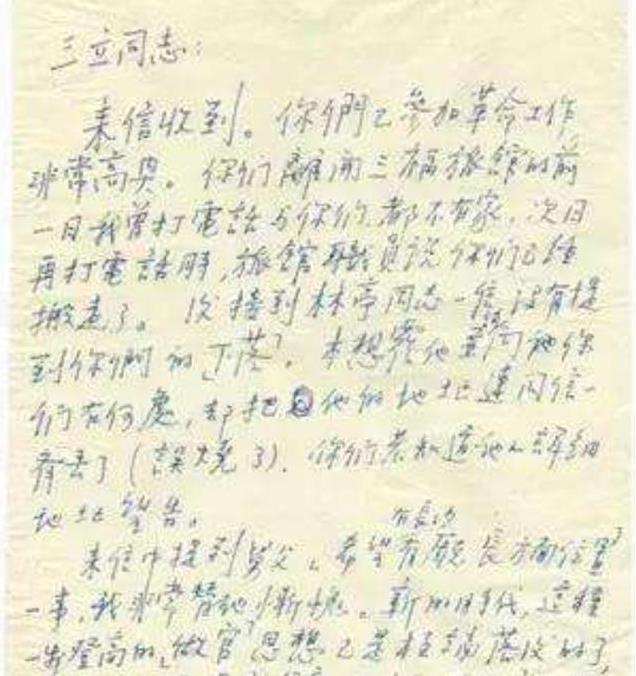 三立同志:
来信收到。你們已參加革命工作
非常高興。你们離開三福旅館的前
一日我曾打電話与你们,都不在家。次日
再打電話時,旅館職員说你们已經
搬走了。後接到林亭同志一信,没有提
到你們的“下落”。本想電他並问他你
们在何處,却把他的地址連同信一
齊丢了(誤燒了)。你们若知道他的詳細
地址望告。
来信中提到舅父“希望在長沙有厅長方面位置”
一事,我非常替他惭愧。新的时代,這種
一步登高的“做官”思想已是极端落後的了,